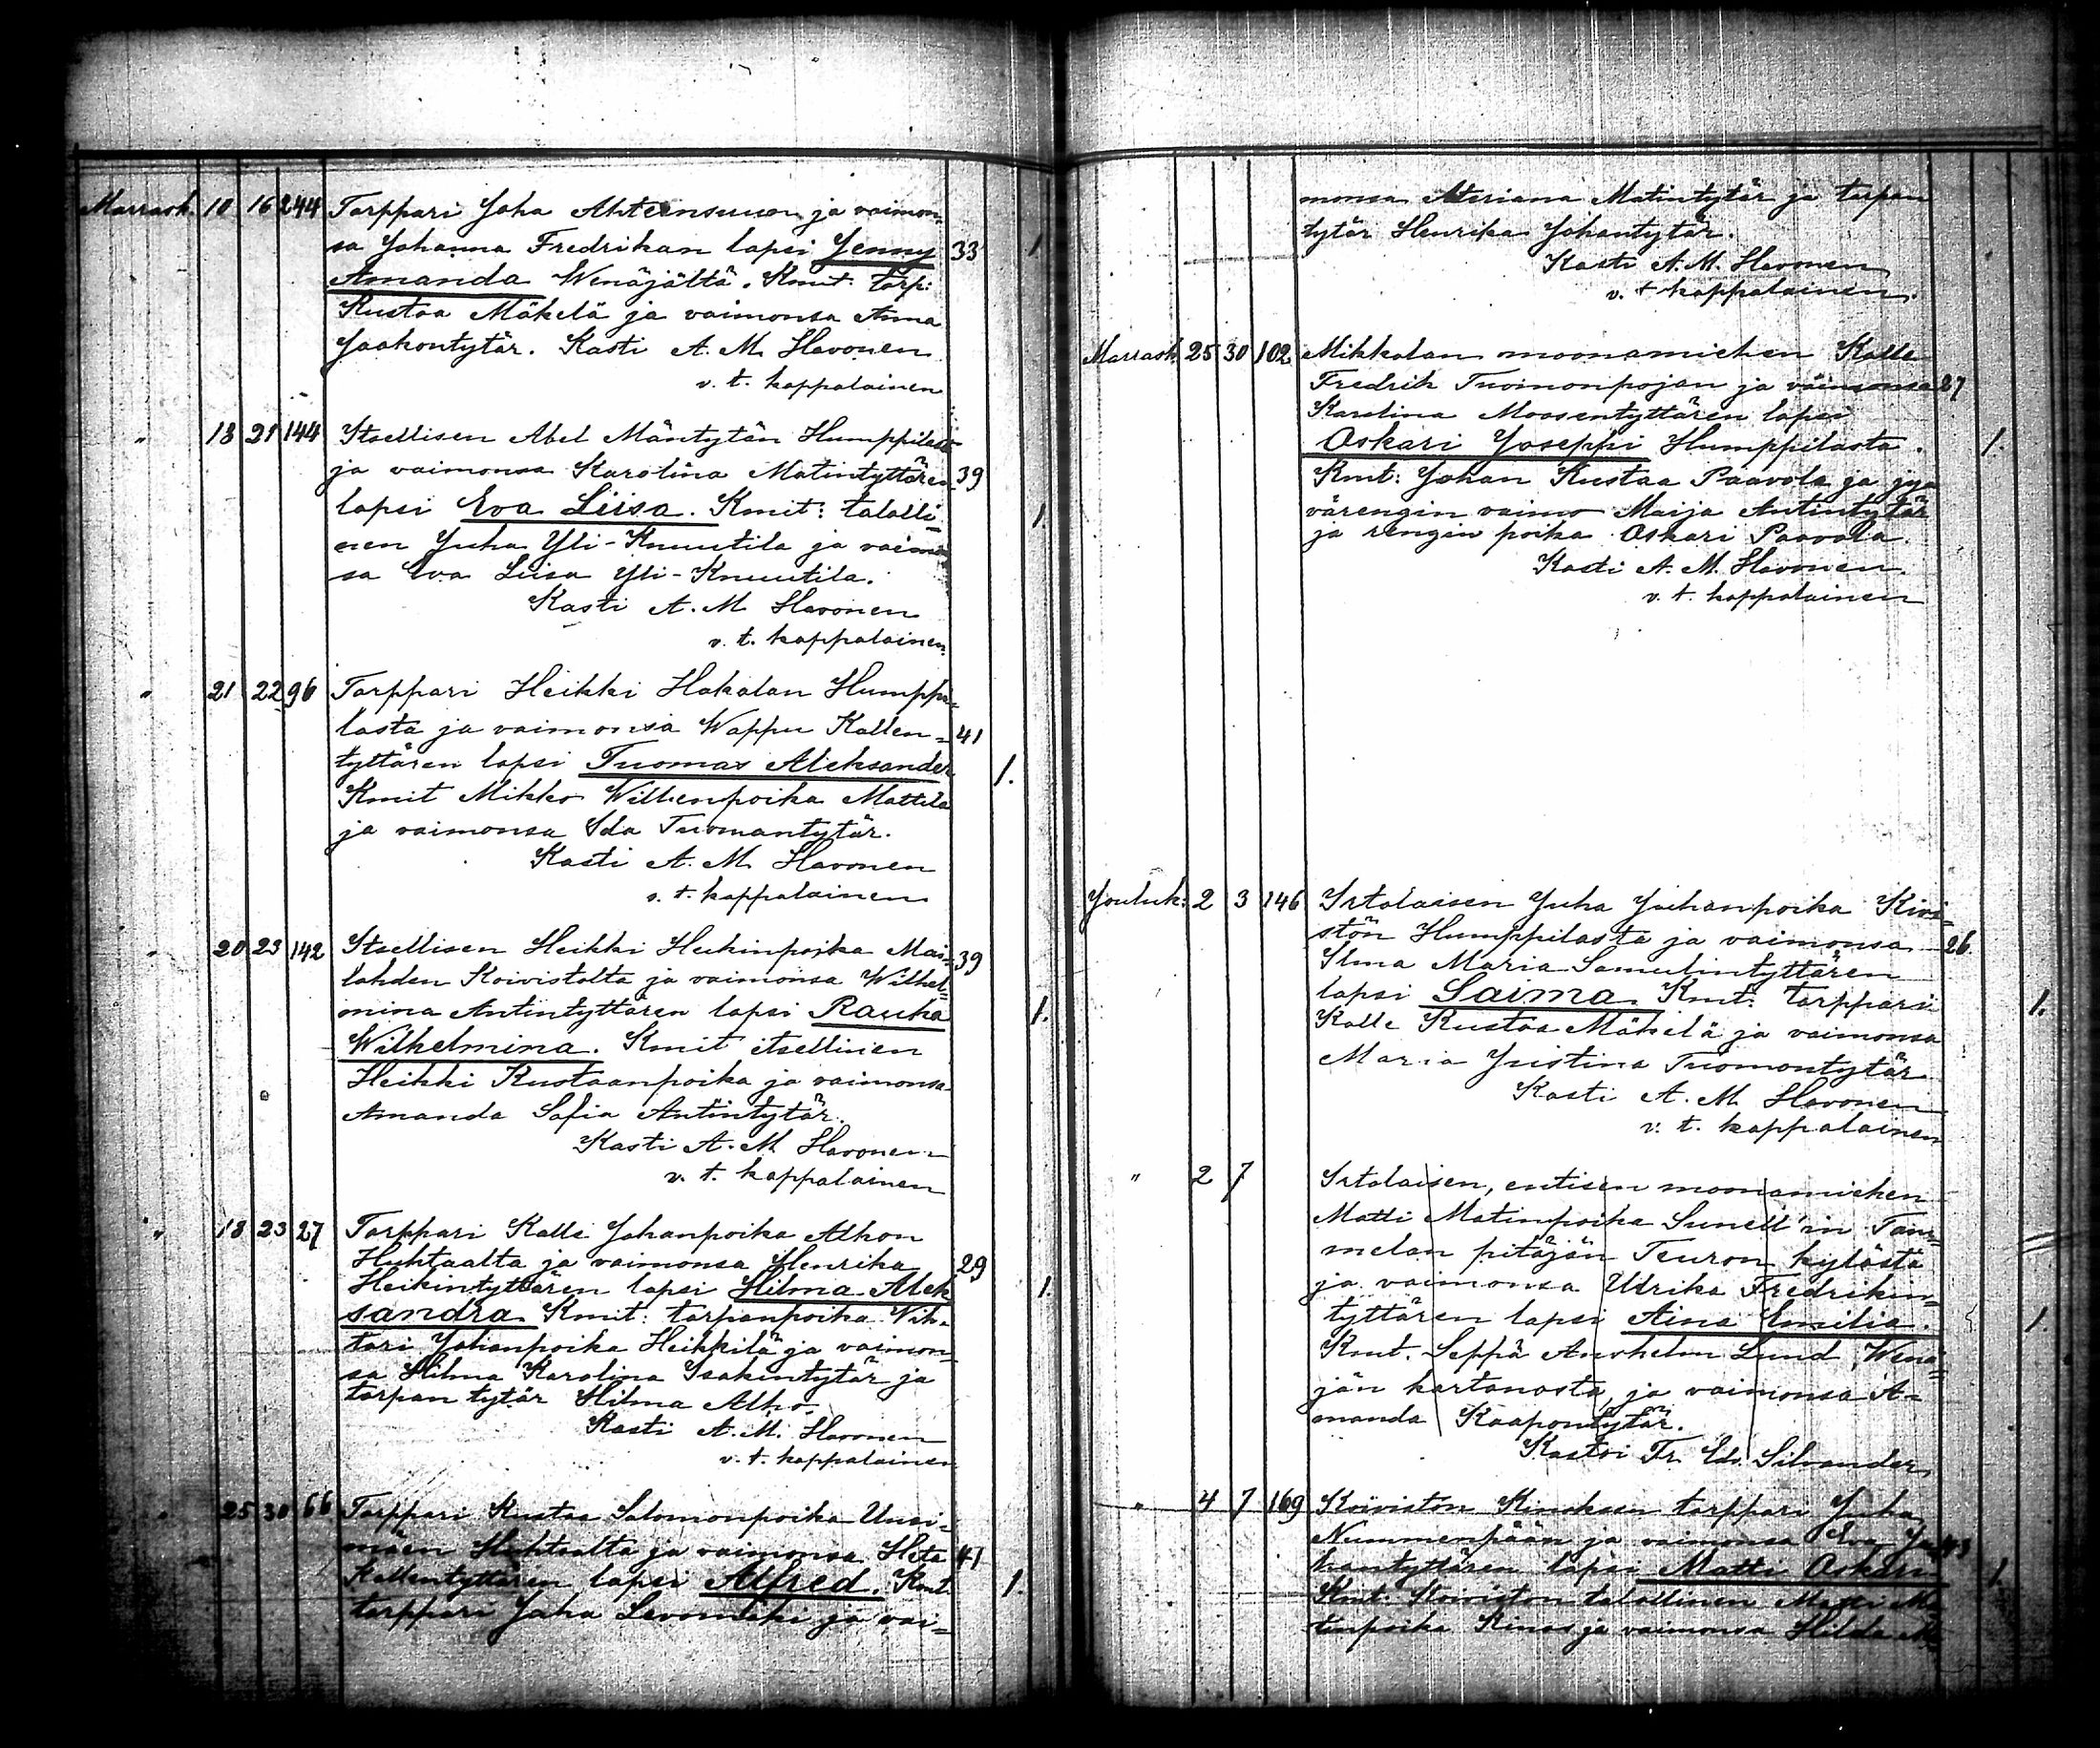 Marrask. 10 16 244 Torppari Juha Ahteensuun ja vaimon-
sa Johanna Fredrikan lapsi Jenny 33 1
Amanda Wenäjältä. Kmit: torp:
Kustaa Mäkelä ja vaimonsa Anna
Jaakontytär. Kasti A. M. Havonen
v. t. kappalainen
" 18 21 144 Itsellisen Abel Mäntytän Humppilasta
ja vaimonsa Karolina Matintyttären 39
lapsi Eva Liisa. Kmit: talolli- 1
nen Juha Yli-Knuutila ja vaimon
sa Eva Liisa Yli-Knuutila.
Kasti A. M Havonen
v. t. kappalainen
" 21 22 96 Torppari Heikki Hakalan Humppi-
lasta ja vaimonsa Wappu Kallen- 41
tyttären lapsi Tuomas Aleksander 1.
Kmit Mikko Willenpoika Mattila
ja vaimonsa Ida Tuomantytär.
Kasti A. M. Havonen
v. t. kappalainen
" 20 23 142 Itsellisen Heikki Heikinpoika Mai- 39
lahden Koivistolta ja vaimonsa Wilhel-
mina Antintyttären lapsi Rauha 1.
Wilhelmina. Kmit itsellinen
Heikki Kustaanpoika ja vaimonsa
Amanda Sofia Antintytär.
Kasti A. M Havonen
v. t. kappalainen
" 18 23 27 Torppari Kalle Johanpoika Alhon
Huhtaalta ja vaimonsa Henrika 29
Heikintyttären lapsi Hilma Alek 1
sandra. Kmit: torpanpoika Vih-
tori Johanpoika Heikkilä ja vaimon-
sa Hilma Karolina Isakintytär ja
torpan tytär Hilma Alho.
Kasti A. M. Havonen
v. t. kappalainen
" 25 30 66 Torppari Kustaa Salomonpoika Uusi-
mäen Huhtaalta ja vaimonsa Heta 41
Kallentyttären lapsi Alfred. Kmt 1.
torppari Juha Levomäki ja vai-
monsa Ateriana Matintytär ja torpan
tytär Henrika Johantytär.
Kasti A. M. Havonen
v. t kappalainen.
Marrask. 25 30 102 Mikkolan moonamiehen Kalle
Fredrik Tuomonpojan ja vaimonsa 27
Karolina Moosentyttären lapsi
Oskari Joseppi Humppilasta. 1.
Kmt: Johan Kustaa Paavola ja jyvä
värengin vaimo Maija Antintytär
ja rengin poika Oskari Paavola.
Kasti A. M. Havonen.
v. t. kappalainen
Jouluk: 2 3 146 Irtolaisen Juha Juhanpoika Kivi-
stön Humppilasta ja vaimonsa 26.
Ilma Maria Samulintyttären
lapsi Saima. Kmt: torppari 1.
Kalle Kustaa Mäkelä ja vaimonsa
Maria Justina Tuomontytär
Kasti A. M. Havonen
v. t. kappalainen
" 2 7 Irtolaisen, entisen moonamiehen
Matti Matinpoika Sunell'in Tam-
melan pitäjän Teuron kylästä
ja vaimonsa Ulrika Fredrikin-
tyttären lapsi Aina Emilia. 1.
Kmt. Seppä Anshelm Lund, Wenä-
jän kartanosta, ja vaimonsa A-
manda Kaapontytär.
Kastoi Fr. Edv. Silvander
" 4 7 169 Koiviston Kinoksen torppari Juha
Nummenpään ja vaimonsa Eva Ju- 43
hantyttären lapsi Matti Oskari 1.
Kmt: Koiviston talollinen Matti Ma-
tinpoika Kinos ja vaimonsa Hilda